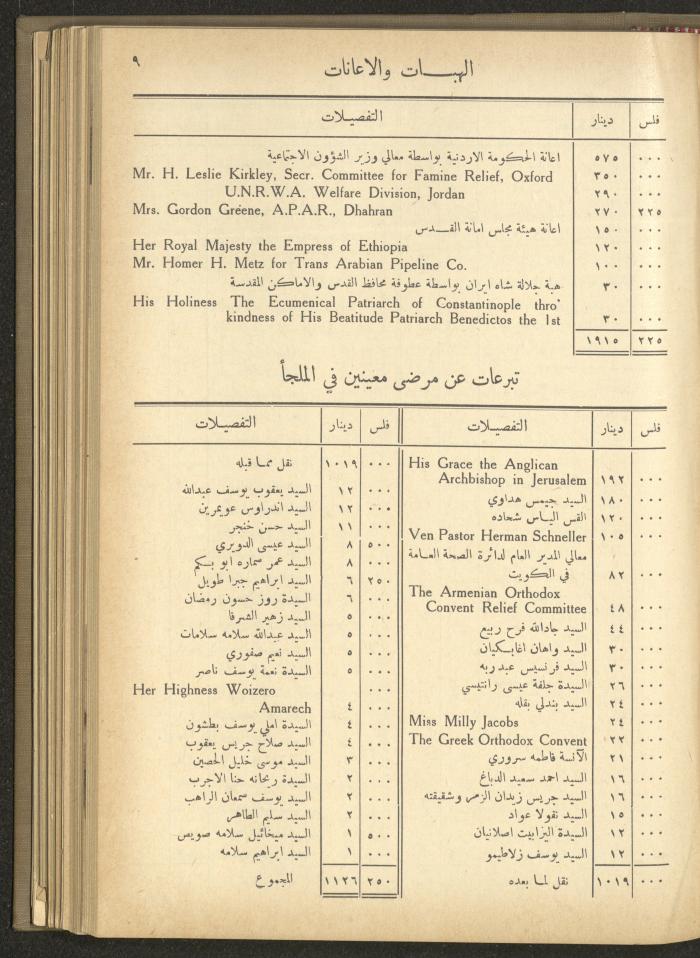 ٩
الهبــات والاعانات
التفصيــلات دينار فلس
اعانة الحكومة الاردنية بواسطة معالي وزير الشؤون الاجتماعية ٥٧٥ ٠٠٠
Mr. H. Leslie Kirkley, Secr. Committee for Famine Relief, Oxford ٣٥٠ ٠٠٠
U.N.R.W.A. Welfare Division, Jordan ٢٩٠ ٠٠٠
Mrs. Gordon Greene, A.P.A.R., Dhahran ٢٧٠ ٢٢٥
اعانة هيئة مجلس امانة القــدس ١٥٠ ٠٠٠
Her Royal Majesty the Empress of Ethiopia ١٢٠ ٠٠٠
Mr. Homer H. Metz for Trans Arabian Pipeline Co. ١٠٠ ٠٠٠
هبة جلالة شاه ايران بواسطة عطوفة محافظ القدس والاماكن المقدسة ٣٠ ٠٠٠
His Holiness The Ecumenical Patriarch of Constantinople thro'
kindness of His Beatitude Patriarch Benedictos the 1st ٣٠ ٠٠٠
١٩١٥ ٢٢٥
تبرعات عن مرضى معينين في الملجأ
التفصيــلات دينار فلس
His Grace the Anglican
Archbishop in Jerusalem ١٩٢ ٠٠٠
السيد جيمس هداوي ١٨٠ ٠٠٠
القس الياس شحاده ١٢٠ ٠٠٠
Ven Pastor Herman Schneller ١٠٥ ٠٠٠
معالي المدير العام لدائرة الصحة العـامة
في الكويت ٨٢ ٠٠٠
The Armenian Orthodox
Convent Relief Committee ٤٨ ٠٠٠
السيد جادالله فرح ربيع ٤٤ ٠٠٠
السيد واهان اغابـكيان ٣٠ ٠٠٠
السيد فرنسيس عبدربه ٣٠ ٠٠٠
السيدة جلفة عيسى رانتيسي ٢٦ ٠٠٠
السيد بندلي بقله ٢٤ ٠٠٠
Miss Milly Jacobs ٢٤ ٠٠٠
The Greek Orthodox Convent ٢٢ ٠٠٠
الآنسة فاطمه سروري ٢١ ٠٠٠
السيد احمد سعيد الدباغ ١٦ ٠٠٠
السيد جريس زيدان الزمر وشقيقته ١٦ ٠٠٠
السيد نقولا عواد ١٥ ٠٠٠
السيدة اليزابيت اصلانيان ١٢ ٠٠٠
السيد يوسف زلاطيمو ١٢ ٠٠٠
نقل لمـا بعده ١٠١٩ ٠٠٠
التفصيــلات دينار فلس
نقل ممـا قبله ١٠١٩ ٠٠٠
السيد يعقوب يوسف عبدالله ١٢ ٠٠٠
السيد اندراوس عويمرين ١٢ ٠٠٠
السيد حسن خنجر ١١ ٠٠٠
السيد عيسى الدويري ٨ ٥٠٠
السيد عمر سماره ابو بـكم ٨ ٠٠٠
السيد ابراهيم جبرا طويل ٦ ٢٥٠
السيدة روز حسون رمضان ٦ ٠٠٠
السيد زهير الشرفا ٥ ٠٠٠
السيد عبدالله سلامه سلامات ٥ ٠٠٠
السيد نعيم صفوري ٥ ٠٠٠
السيدة نعمة يوسف ناصر ٥ ٠٠٠
Her Highness Woizero ٠٠٠
Amarech ٤ ٠٠٠
السيدة املي يوسف بطشون ٤ ٠٠٠
السيد صلاح جريس يعقوب ٤ ٠٠٠
السيد موسى خليل الحصين ٣ ٠٠٠
السيدة ريحانه حنا الاجرب ٢ ٠٠٠
السيد يوسف سمعان الراهب ٢ ٠٠٠
السيد سليم الطاهر ٢ ٠٠٠
السيد ميخائيل سلامه صويص ١ ٥٠٠
السيد ابراهيم سلامه ١ ٠٠٠
المجموع ١١٢٦ ٢٥٠